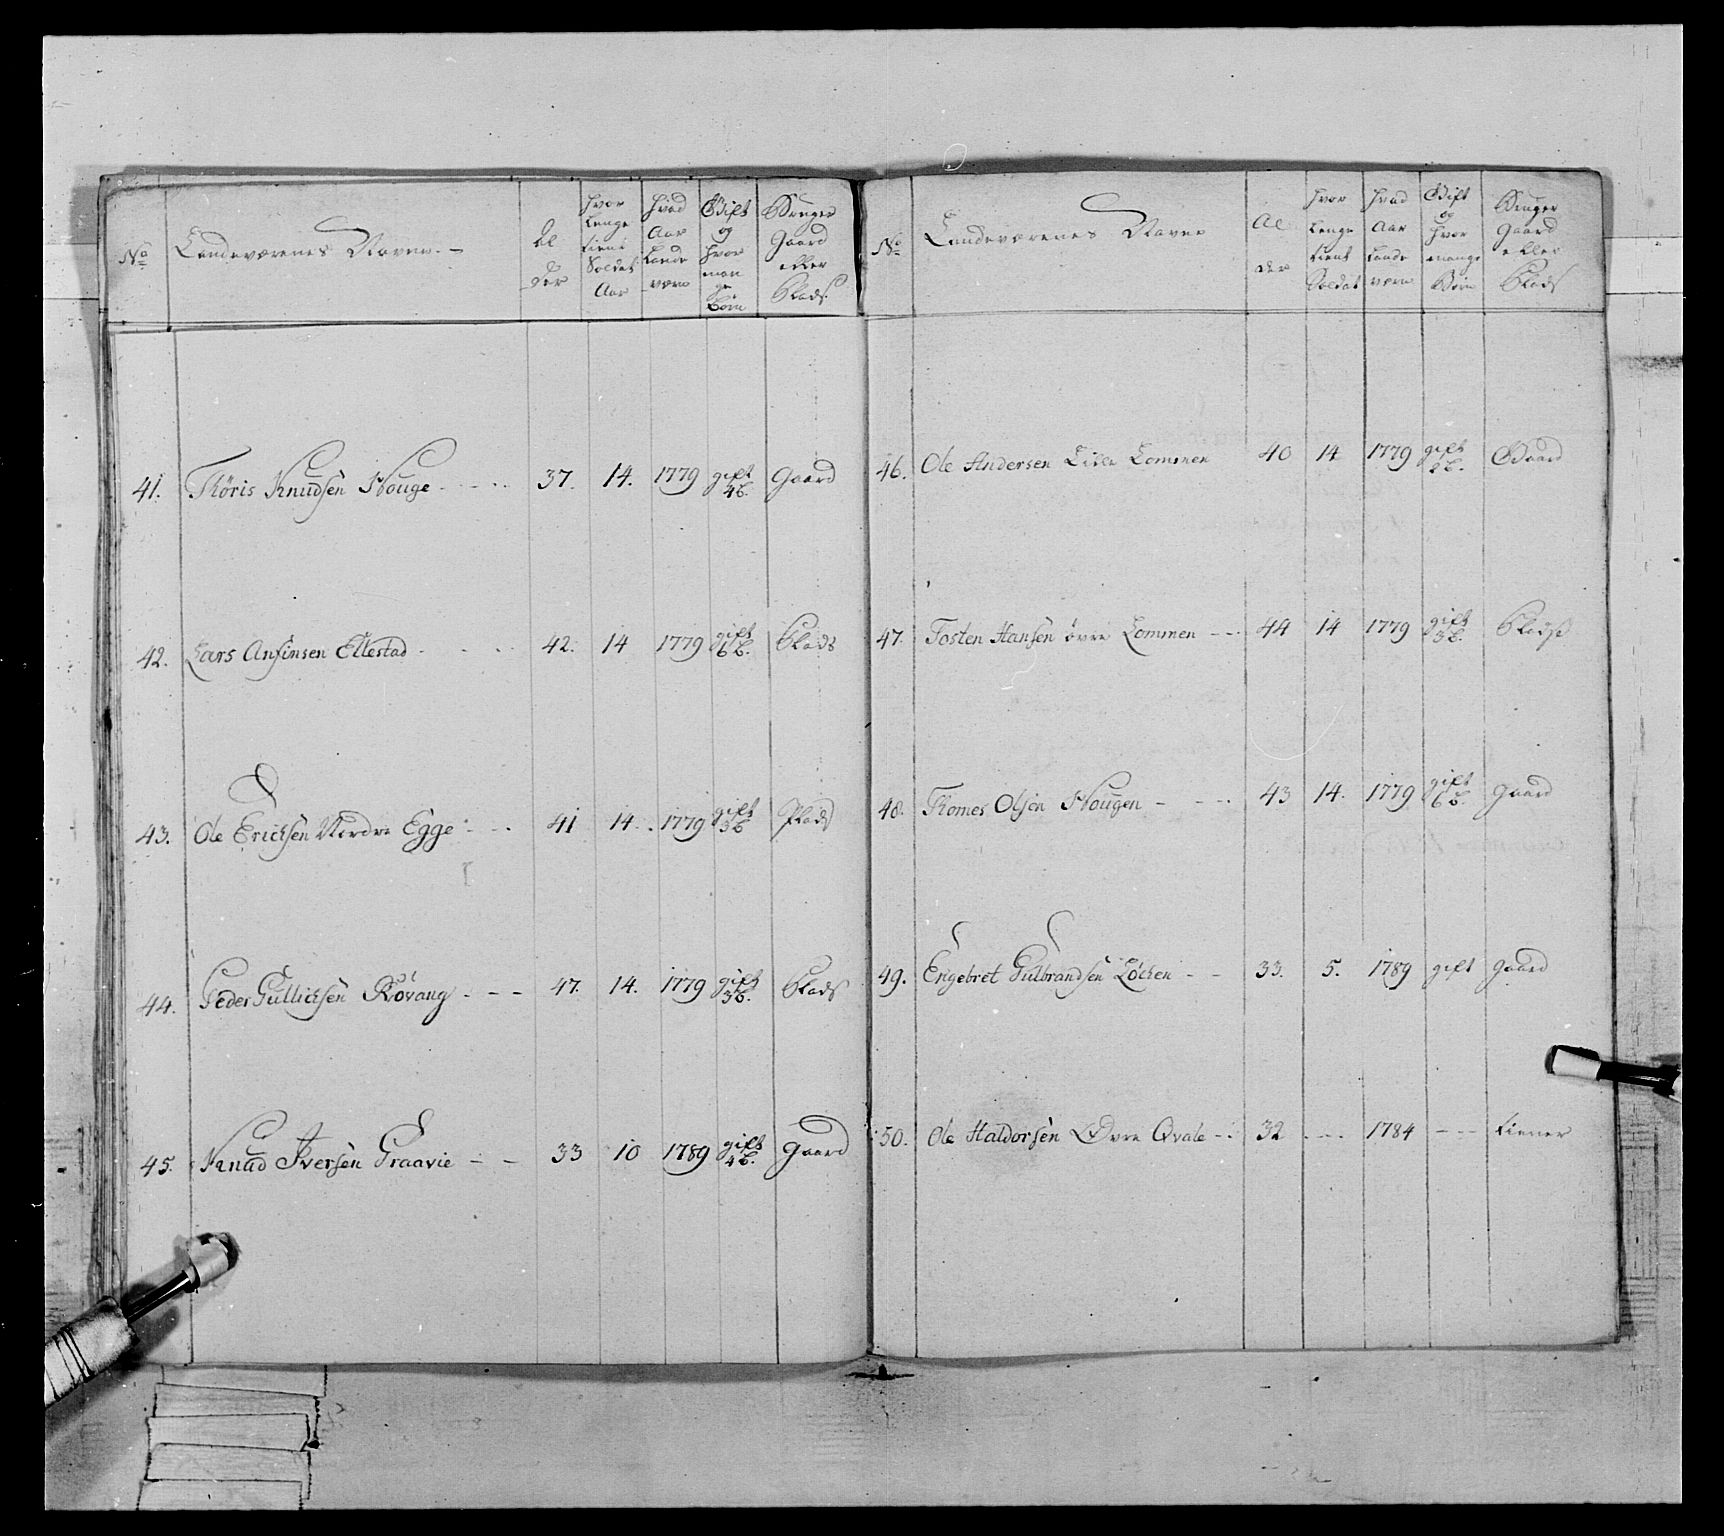 No
Landeværenes Navne
Al
der
hvor
lenge
tient
Soldat
Aar
hvad
Aar
Lande
værn
Gift
og
hvor
man
ge
Børn
Bruger
Gaard
eller
Plads
41. Thöris Knudsen Houge 37. 14. 1779 gift 4 b. Gaard
42. Lars Ansimsen Ellestad 42. 14 1779 gift 6 b. Plads
43. Ole Ericksen Nordre Egge 41 14. 1779 gift 3 b Plads
44. Peder Gullicksen Rövang 47. 14. 1779 gift 3 b. Plads
45. Knud Iversen Graavie 33 10 1789 gift 4 b. gaard
No
Landeværenes Navne
Al
der
hvor
lenge
tient
Soldat
hvad
Aar
Lande
værn
Gift
og
hvor
mange
Börn
Bruger
Gaard
eller
Plads
46. Ole Andersen Lille Lommen 40 14 1779 gift b. Gaard
47. Tosten Hansen övre Lommen 44 14 1779 gift 3 b. Plads
48. Thomes Olsen Hougen 43 14. 1779 gift 6 b. gaard
49. Engebret Gulbrandsen Löcken 33. 5. 1789 gift gaard
50. Ole Haldorsen Övre Qvale 32 1784 tiener